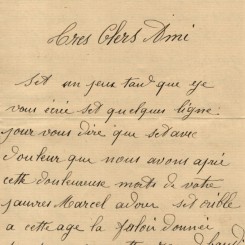 Tres Chers Ami
Set un peux tard que je
vous écrie set quelques ligne
pour vous dire que set avec
douleur que nous avons aprie
cette douleureuse morts de votre
pauvres Marcel adorer set crible
a cette age la faloir donnée